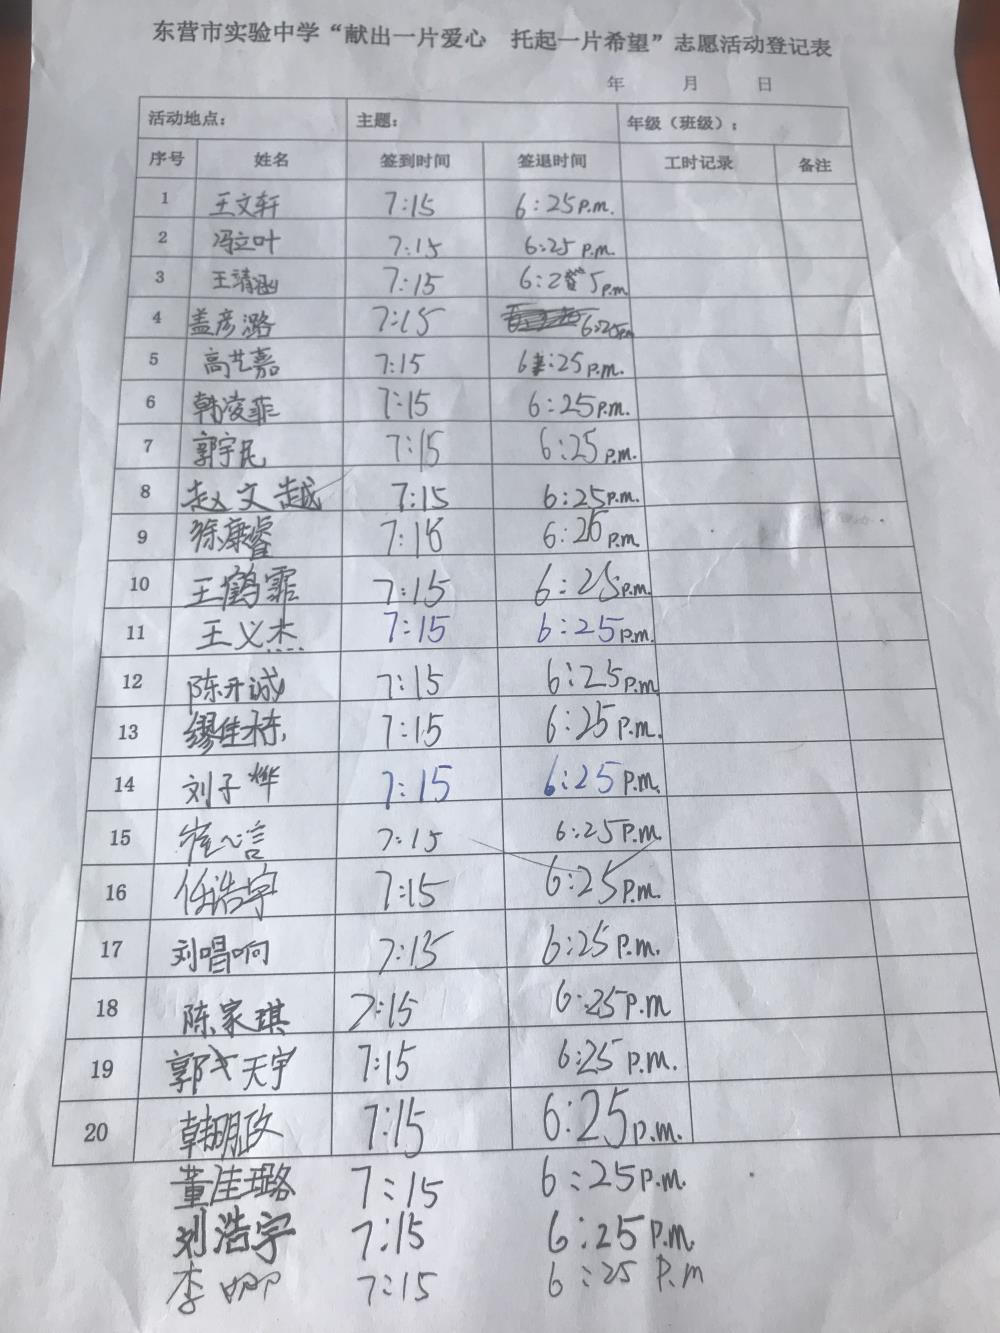 东营市实验中学“献出一片爱心 托起一片希望”志愿活动登记表
年 月 日
活动地点： 主题： 年级（班级）：
序号 姓名 签到时间 签退时间 工时记录 备注
1 王文轩 7:15 6:25 p.m.
2 冯立叶 7:15 6:25 p.m.
3 王靖涵 7:15 6:25 p.m
4 盖彦潞 7:15 6:25pm
5 高艺嘉 7:15 6:25 p.m.
6 韩凌菲 7:15 6:25 p.m.
7 郭宇民 7:15 6:25 p.m.
8 赵文越 7:15 6:25 p.m.
9 徐康睿 7:16 6:26 p.m.
10 王鹤霏 7:15 6:25 p.m.
11 王义杰 7:15 6:25 p.m.
12 陈开诚 7:15 6:25 p.m
13 缪佳栋 7:15 6:25 p.m.
14 刘子烨 7:15 6:25 p.m.
15 崔心言 7:15 6:25 p.m.
16 任浩宇 7:15 6:25 p.m.
17 刘唱响 7:15 6:25 p.m.
18 陈家琪 7:15 6:25 p.m
19 郭天宇 7:15 6:25 p.m.
20 韩明政 7:15 6:25 p.m.
董佳璐 7:15 6:25 p.m.
刘浩宇 7:15 6:25 p.m.
李娜 7:15 6:25 P.m